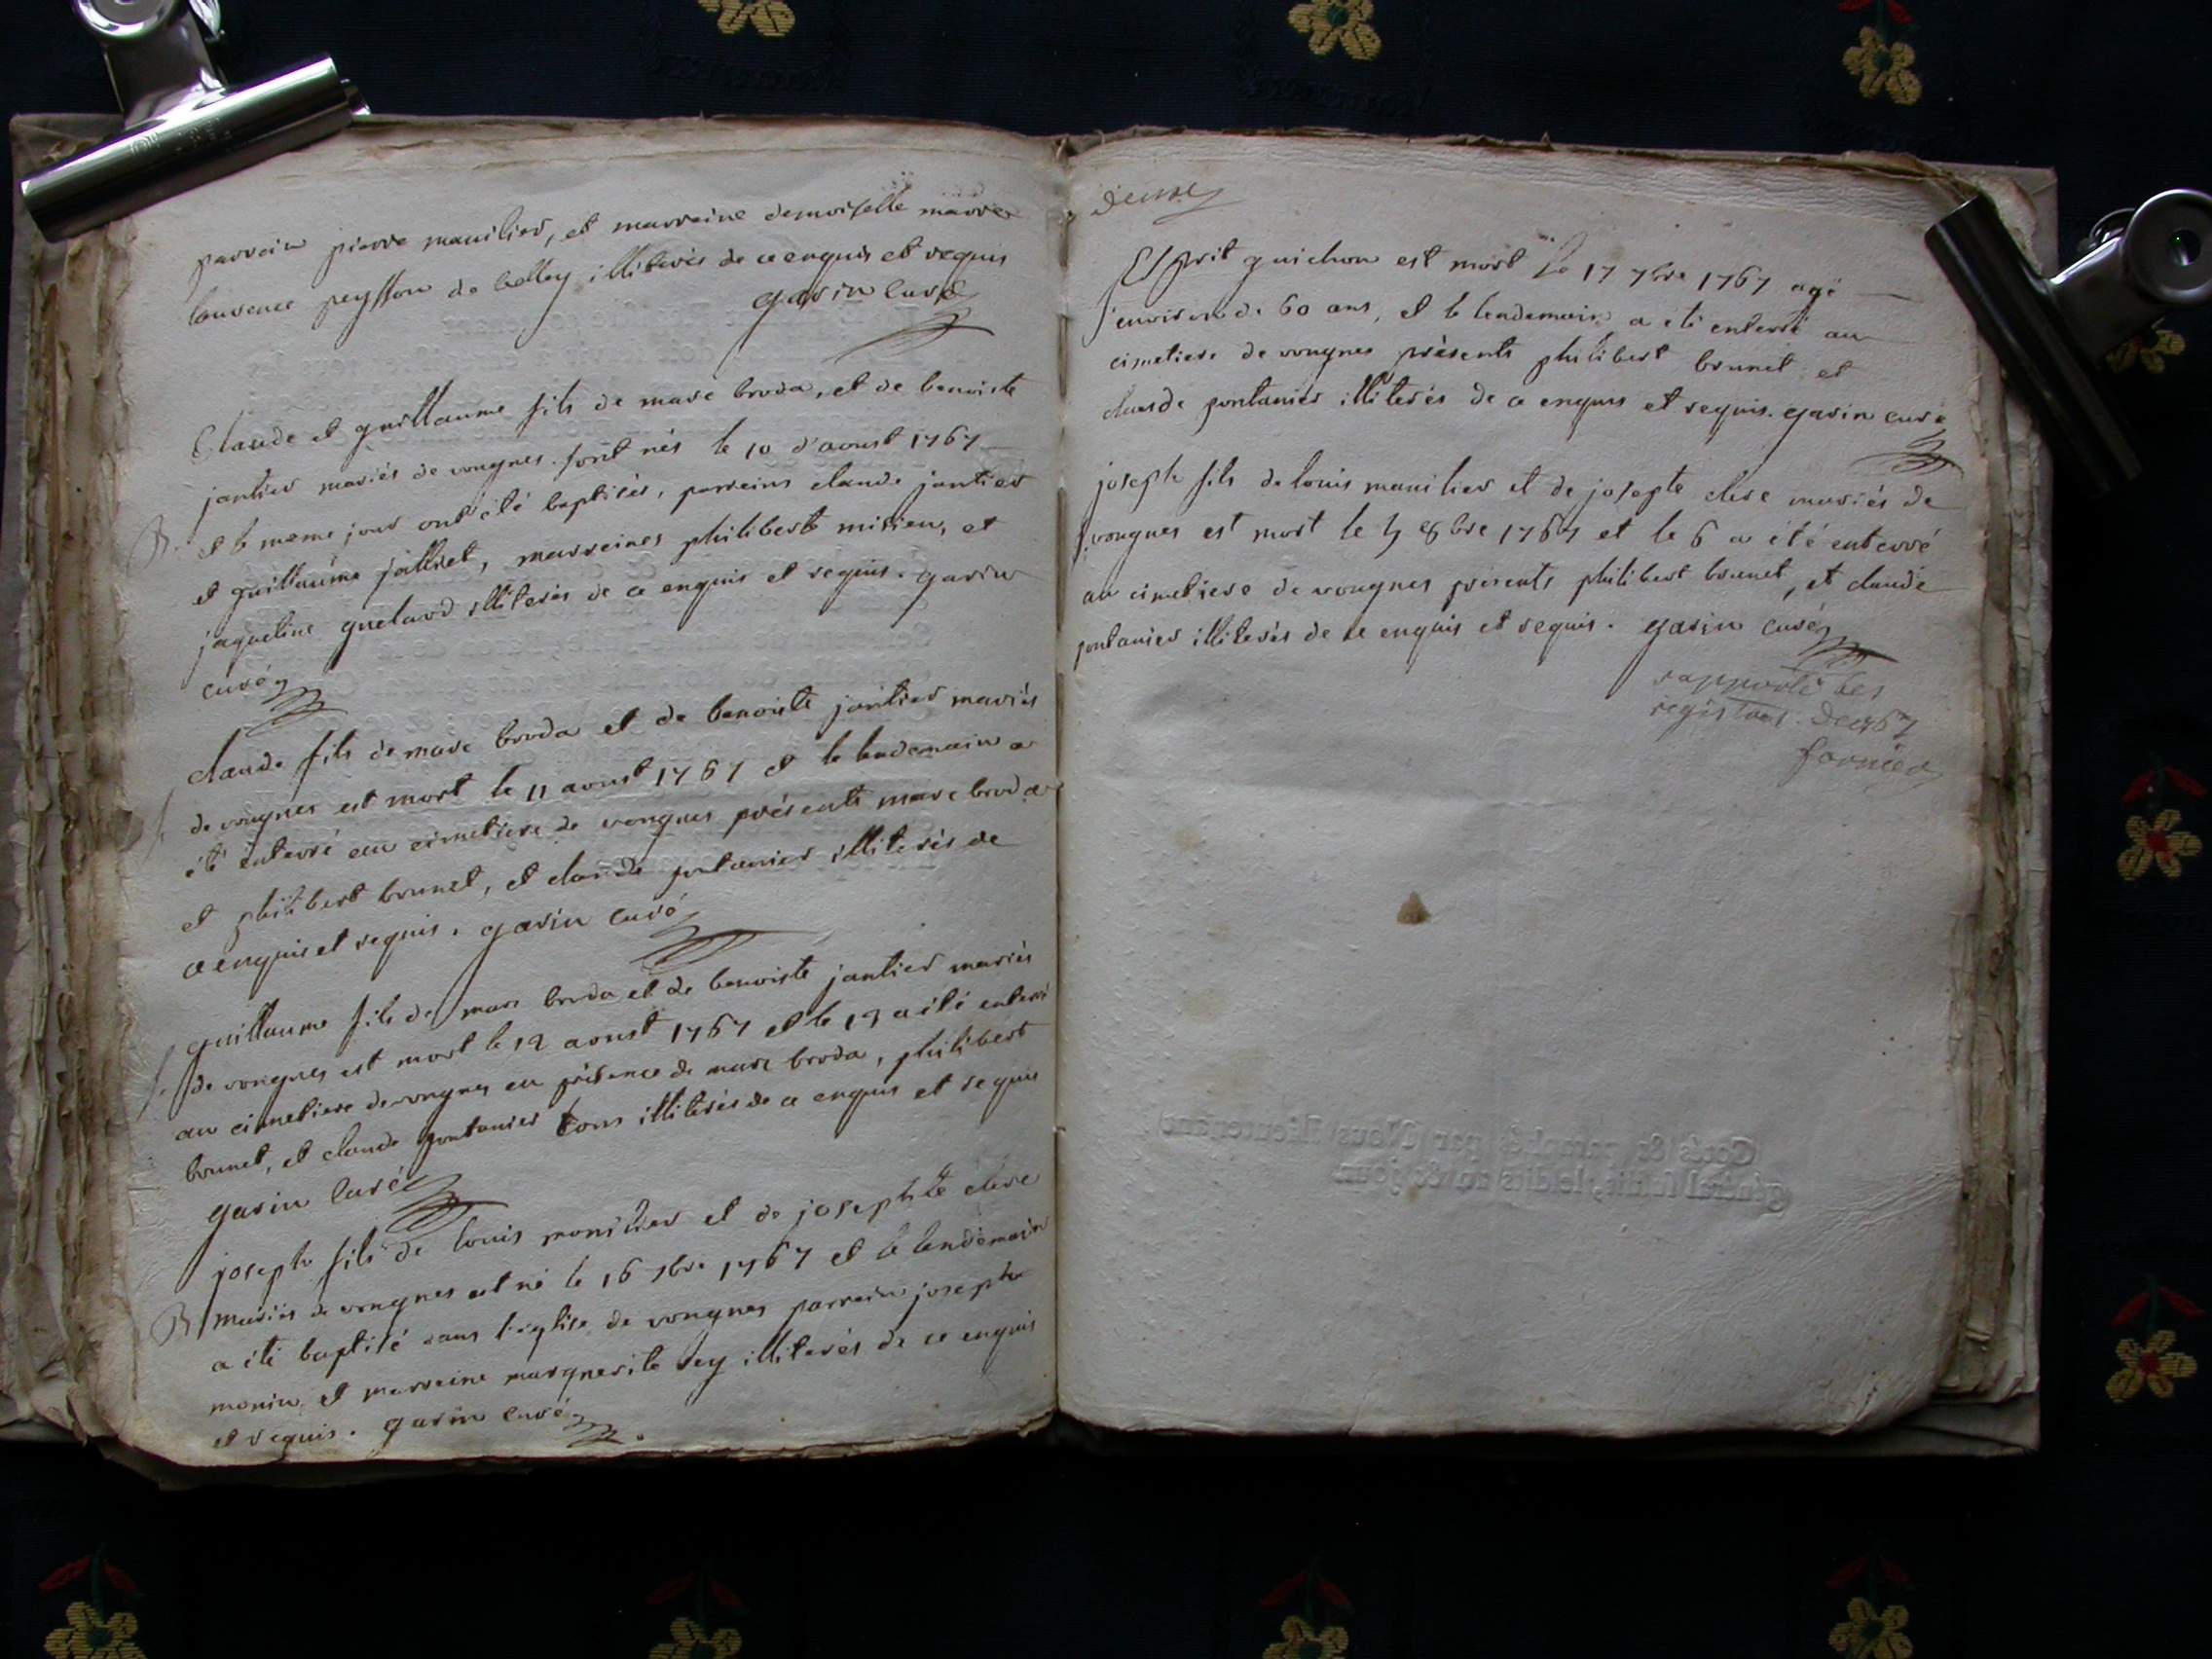 parrein pierre manilier, et marreine demoiselle marie
laurence peysson de belley illiterés de ce enquis et requis
garin curé
Claude et guillaume fils de marc broda, et de benoiste
jantier mariés de vongnes sont nés le 10 d'aoust 1767
B. et le meme jour ont été baptisés, parreins claude jantier
et guillaume jalliet, marreines philiberte mitieu, et
jaqueline guelard illiterés de ce enquis et requis. garin
curé
claude fils de marc broda et de benoiste jantier mariés
de vongnes est mort le 11 aoust 1767 et le lendemain a
été enterré au cimetiere de vongnes présents marc broda
et philibert brunet, et claude pontanier illiterés de
ce enquis et requis. garin curé
guillaume fils de marc broda et de benoiste jantier mariés
de vongnes est mort le 12 aoust 1767 et le 13 a été enterré
au cimetiere de vongnes en présence de marc broda, philibert
brunet, et claude pontanier tous illiterés de ce enquis et requis
garin curé
joseph fils de louis manilier et de josephte clere
B mariés de vongnes est né le 16 7bre 1767 et le lendemain
a été baptisé dans l'eglise de vongnes parrein joseph
monin et marreine marguerite rey illiterés de ce enquis
et requis. garin curé
Esprit guichon est mort le 17 7bre 1767 agé
environ de 60 ans, et le lendemain a été enterré au
cimetiere de vongnes présents philibert brunet et
claude pontanier illiterés de ce enquis et requis. garin curé
joseph fils de louis manilier et de josepte clere mariés de
vongnes est mort le 5 8bre 1767 et le 6 a été enterré
au cimetiere de vongnes présents philibert brunet, et claude
pontanier illiterés de ce enquis et requis. garin curé
rapporté les
registres